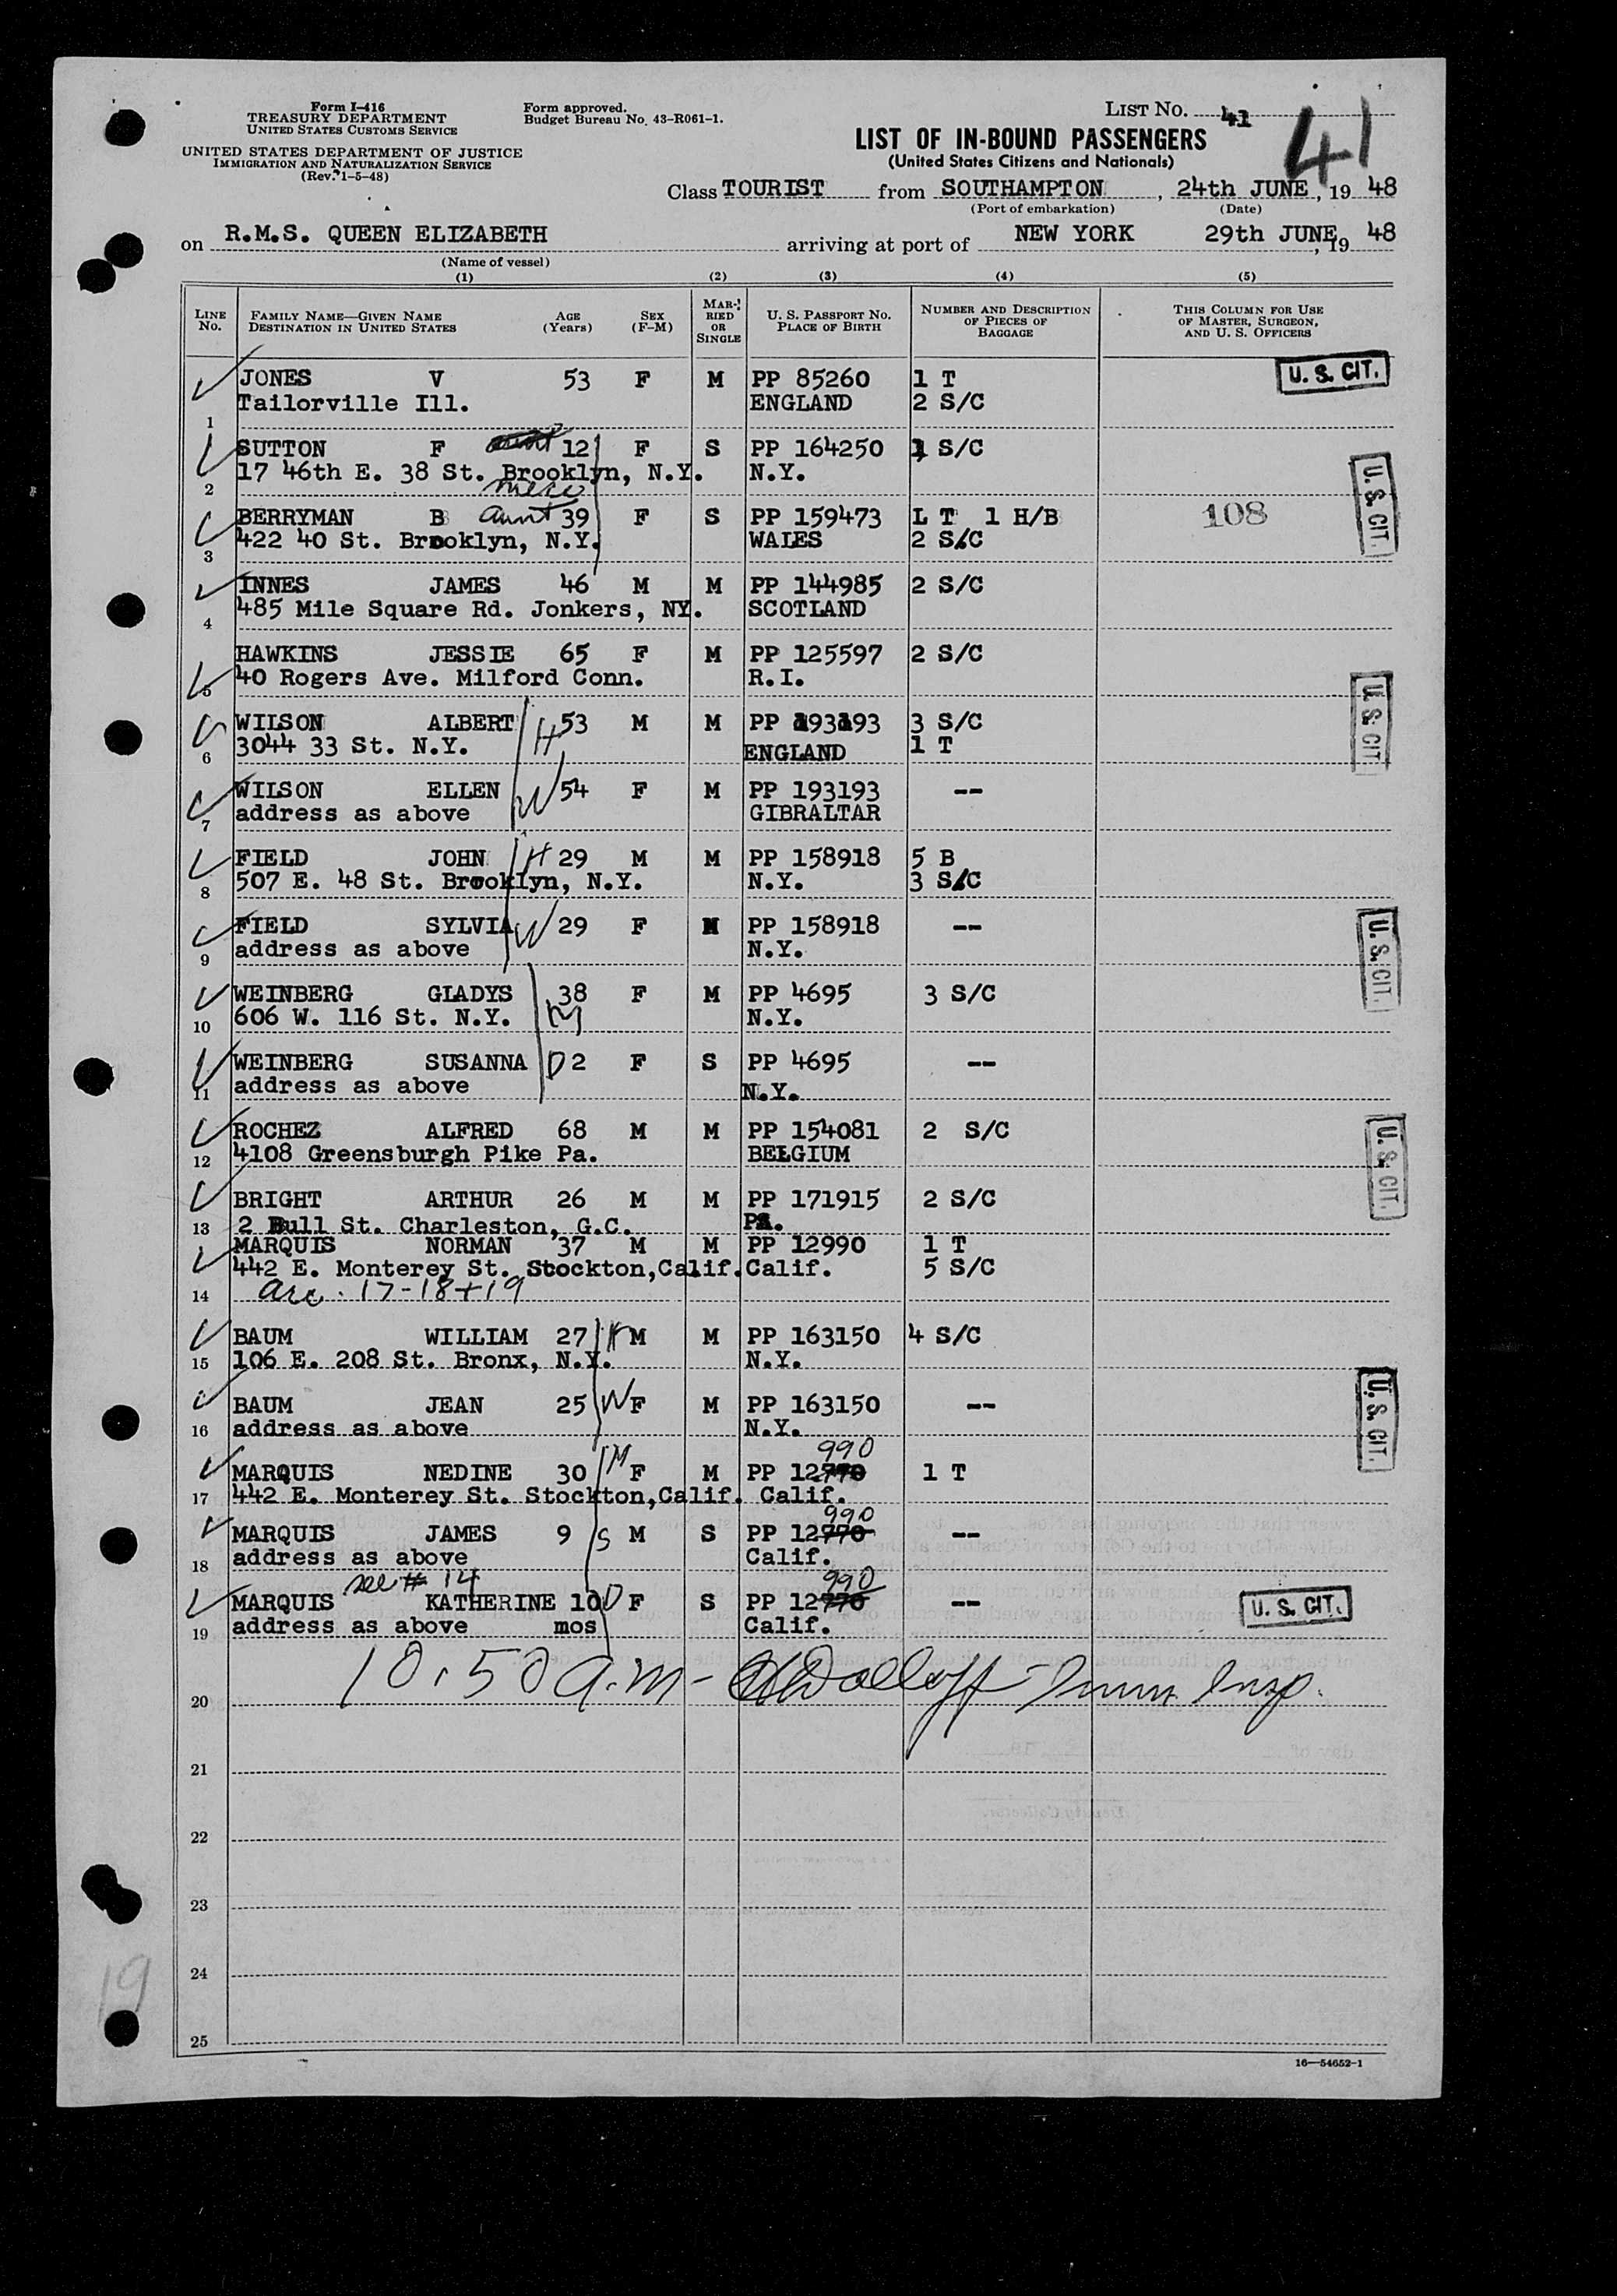 Form I-416
TREASURY DEPARTMENT
UNITED STATES CUSTOMS SERVICE
UNITED STATES DEPARTMENT OF JUSTICE
IMMIGRATION AND NATURALIZATION SERVICE
(Rev. 1-5-48)
Form approved.
Budget Bureau No. 43-R061-1.
LIST NO. 41
41
LIST OF IN-BOUND PASSENGERS
(United States Citizens and Nationals)
Class TOURIST from SOUTHAMPTON, 24th JUNE, 19 48
(Port of embarkation) (Date)
on R.M.S. QUEEN ELIZABETH arriving at port of NEW YORK 29th JUNE, 19 48
(Name of vessel)
(1) (2) (3) (4) (5)
LINE No. FAMILY NAME—GIVEN NAME DESTINATION IN UNITED STATES AGE (Years) SEX (F-M) MARRIED OR SINGLE U. S. PASSPORT NO. PLACE OF BIRTH NUMBER AND DESCRIPTION OF PIECES OF BAGGAGE THIS COLUMN FOR USE OF MASTER, SURGEON, AND U. S. OFFICERS
JONES V 53 F M PP 85260 1 T U. S. CIT.
Tailorville Ill. ENGLAND 2 S/C
1
SUTTON F 12 F S PP 164250 1 S/C
17 46th E. 38 St. Brooklyn, N.Y. N.Y.
2 niece
BERRYMAN B aunt 39 F S PP 159473 L T 1 H/B 108 U. S. CIT.
422 40 St. Brooklyn, N.Y. WALES 2 S/C
3
INNES JAMES 46 M M PP 144985 2 S/C
485 Mile Square Rd. Jonkers, NY. SCOTLAND
4
HAWKINS JESSIE 65 F M PP 125597 2 S/C
5 40 Rogers Ave. Milford Conn. R.I.
WILSON ALBERT H 53 M M PP 193193 3 S/C U. S. CIT.
6 3044 33 St. N.Y. ENGLAND 1 T
WILSON ELLEN W 54 F M PP 193193 --
7 address as above GIBRALTAR
FIELD JOHN H 29 M M PP 158918 5 B
8 507 E. 48 St. Brooklyn, N.Y. N.Y. 3 S/C
FIELD SYLVIA W 29 F M PP 158918 -- U. S. CIT.
9 address as above N.Y.
WEINBERG GLADYS 38 F M PP 4695 3 S/C
10 606 W. 116 St. N.Y. M N.Y.
WEINBERG SUSANNA D 2 F S PP 4695 --
11 address as above N.Y.
ROCHEZ ALFRED 68 M M PP 154081 2 S/C U. S. CIT.
12 4108 Greensburgh Pike Pa. BELGIUM
BRIGHT ARTHUR 26 M M PP 171915 2 S/C
13 2 Bull St. Charleston, G.C. PA.
MARQUIS NORMAN 37 M M PP 12990 1 T
442 E. Monterey St. Stockton, Calif. Calif. 5 S/C
14 acc. 17-18+19
BAUM WILLIAM 27 H M M PP 163150 4 S/C
15 106 E. 208 St. Bronx, N.Y. N.Y.
BAUM JEAN 25 W F M PP 163150 -- U. S. CIT.
16 address as above N.Y.
990
MARQUIS NEDINE 30 M F M PP 12770 1 T
17 442 E. Monterey St. Stockton, Calif. Calif.
990
MARQUIS JAMES 9 S M S PP 12770 --
18 address as above Calif.
see # 14 990
MARQUIS KATHERINE 10 D F S PP 12770 -- U. S. CIT.
19 address as above mos Calif.
20 10:50 a.m - Imm. Insp.
21
22
23
24
25
19
16—54652-1